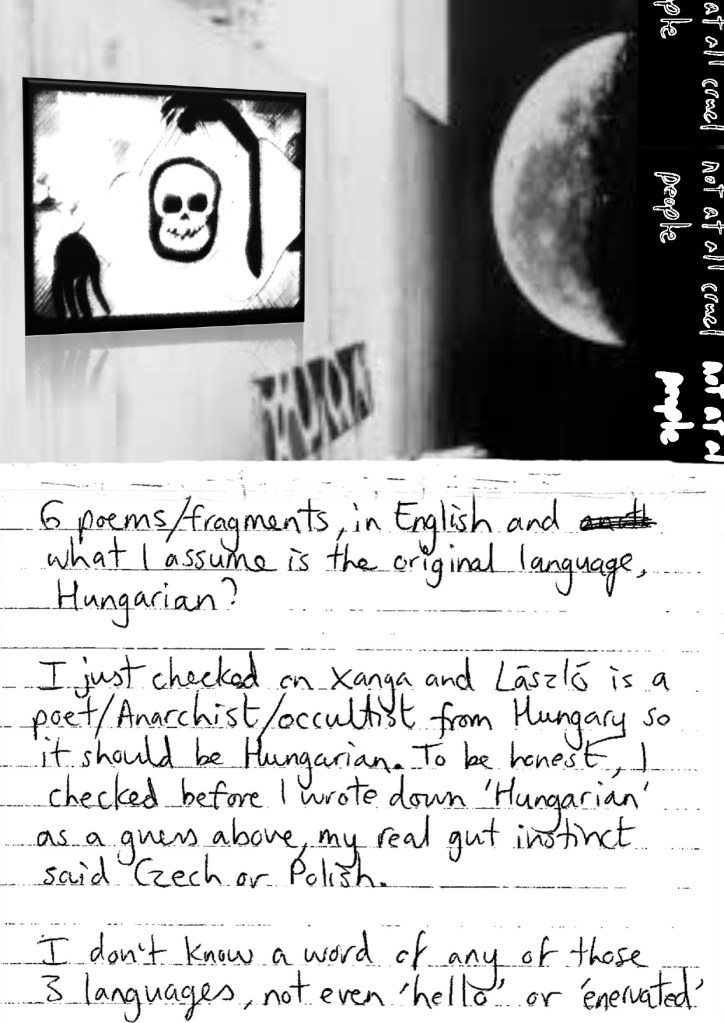 at all cruel
people
not at all cruel
people
not at al
people
6 poems/fragments, in English and
what I assume is the original language,
Hungarian?
I just checked on Xanga and László is a
poet/Anarchist/occultist from Hungary so
it should be Hungarian. To be honest, I
checked before I wrote down 'Hungarian'
as a guess above, my real gut instinct
said Czech or Polish.
I don't know a word of any of those
3 languages, not even 'hello' or 'enervated'